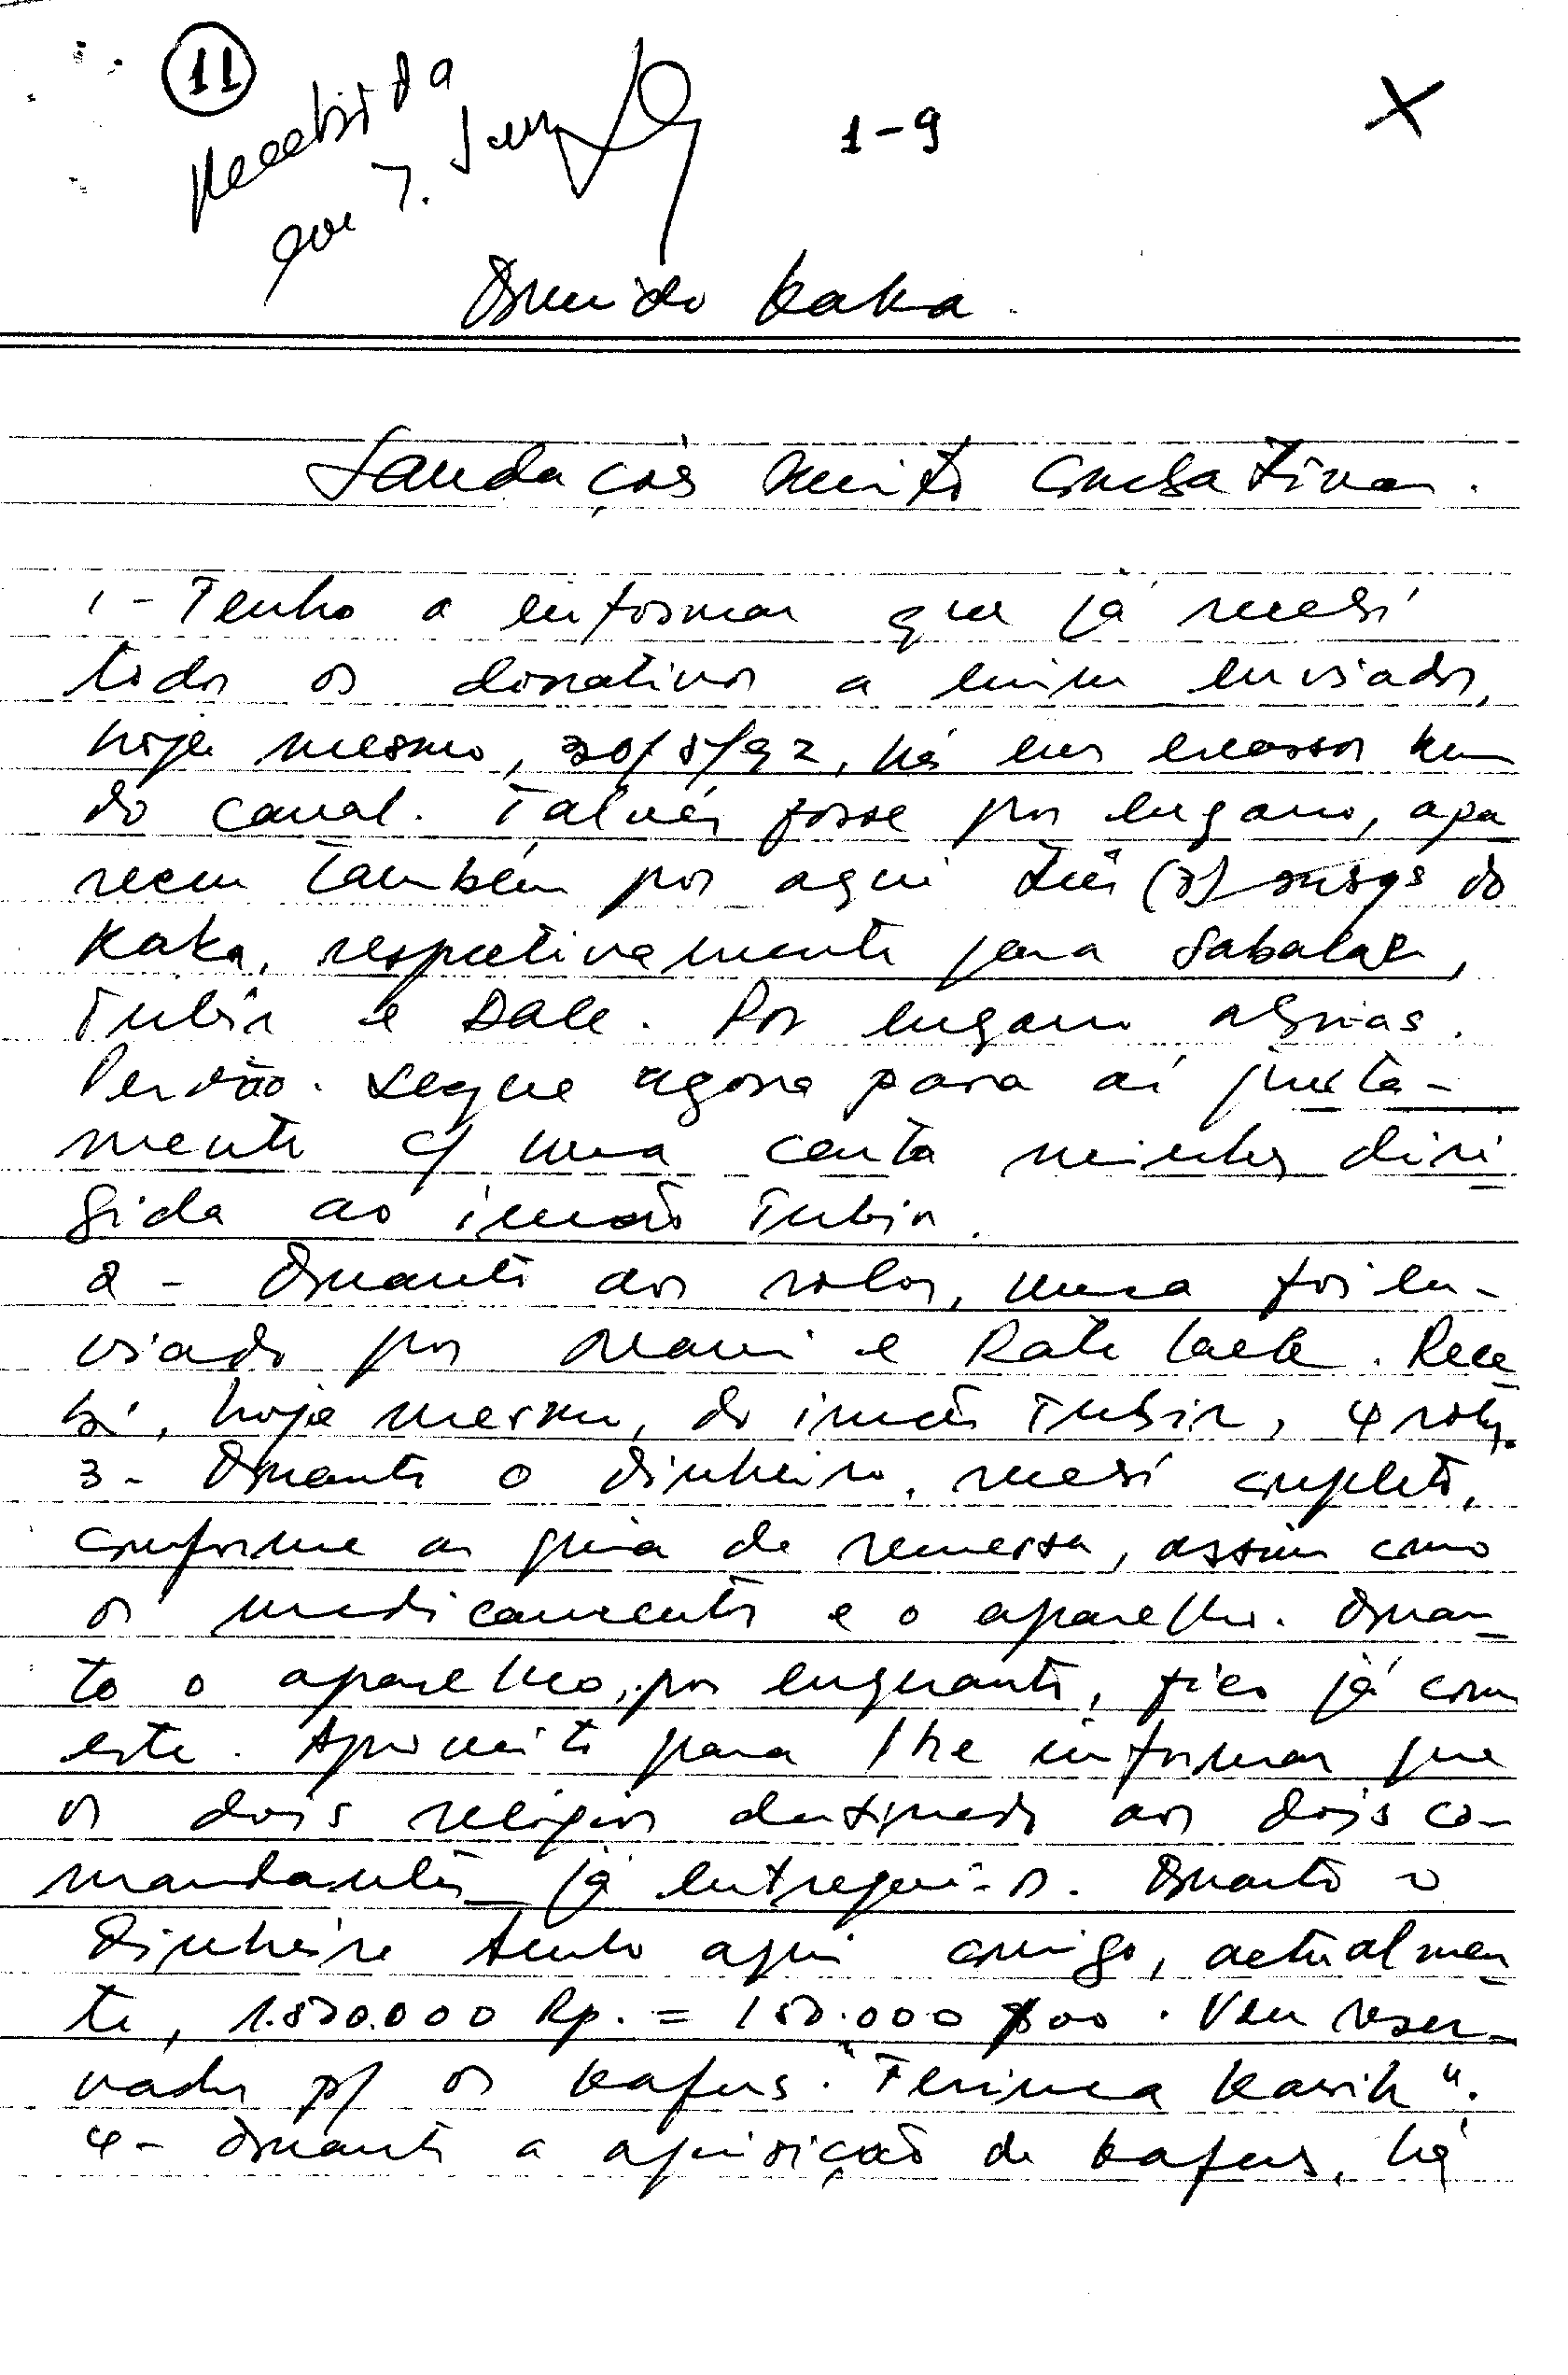 11
Recebida
por J.
1-9
X
Querido Kaka.
Saudações muito combativas.
1 - Tenho a informar que já recebi
todos os donativos a mim enviados,
hoje mesmo, 30/8/92, há
do canal. Talvés fosse por engano, apa
recem também por aqui três (3) do
Kaka, respectivamente para Sabalae,
Tubir e Dale. Por engano abri-as.
Perdão. Segue agora para aí junta-
mente c/ uma carta minha diri
gida ao irmão Tubir.
2 - Quanto aos rolos, nunca foi en-
viado por Mauri e Rate Laek. Rece
bi, hoje mesmo, do irmão Tubir, 4 rolos.
3 - Quanto o dinheiro, recebi completo,
conforme a guia de remessa, assim como
os medicamentos e o aparelho. Quan-
to o aparelho, por enquanto, fico já com
este. Aproveito para lhe informar que
os dois relógios destinados aos dois co-
mandantes já entreguei-os. Quanto o
dinheiro tenho aqui comigo, actualmen
te, 1.500.000 Rp. = 150.000 $00. Vem reser-
vados p/ os kapus. "Terima Kasih".
4 - Quanto a aquisição de kapus, há